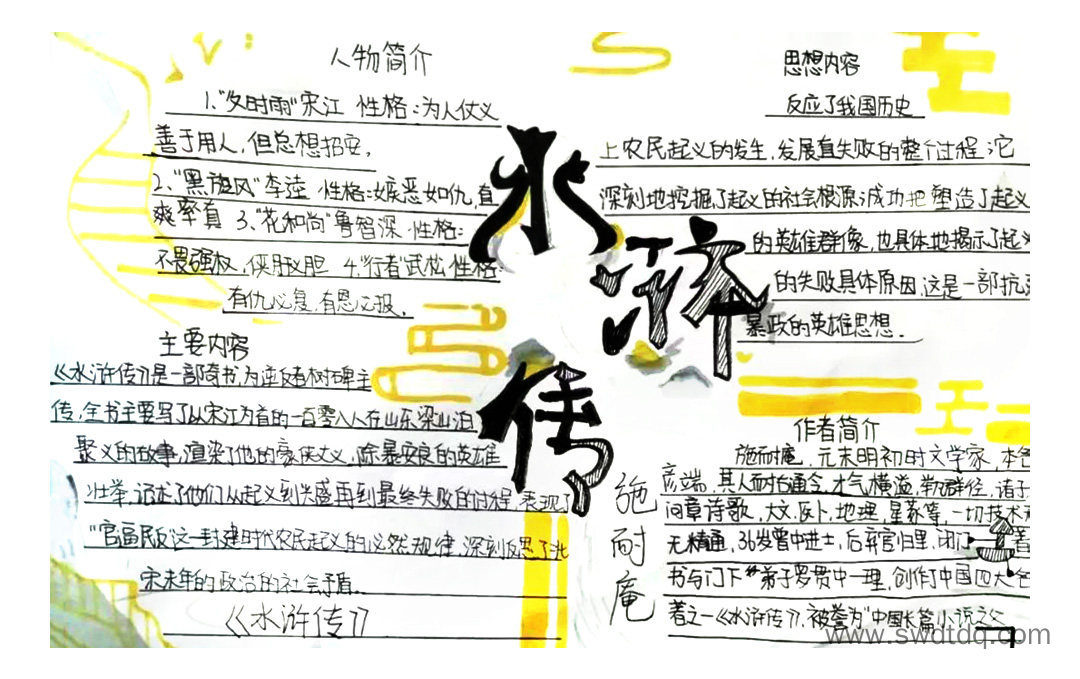 人物简介
1."及时雨"宋江 性格:为人仗义
善于用人,但总想招安。
2."黑旋风"李逵 性格:嫉恶如仇,直
爽率真 3."花和尚"鲁智深 性格:
不畏强权,侠肝义胆 4."行者"武松 性格:
有仇必复,有恩必报。
主要内容
《水浒传》是一部奇书,为逆反者树碑主
传,全书主要写了从宋江为首的一百零八人在山东梁山泊
聚义的故事,渲染了他的豪侠大义,除暴安良的英雄
壮举,记述了他们从起义到兴盛再到最终失败的过程,表现了
"官逼民反"这一封建时代农民起义的必然规律,深刻反思了北
宋末年的政治的社会矛盾.
《水浒传》
水浒传
思想内容
反应了我国历史
上农民起义的发生,发展直失败的整个过程,它
深刻地挖掘了起义的社会根源,成功把塑造了起义
的英雄群像,也具体地揭示了起义
的失败具体原因,这是一部抗
暴政的英雄思想.
作者简介
施耐庵
施耐庵,元末明初时文学家,本名
彦端,其人而古通今,才气横溢,
词章诗歌,大文,医卜,地理,星象等,一切技术
无精通,36岁曾中进士,后弃官归里,闭门著
书与门下弟子罗贯中一理,创作了中国四大名
著之一《水浒传》,被誉为"中国长篇小说之父
www.swdtdq.com